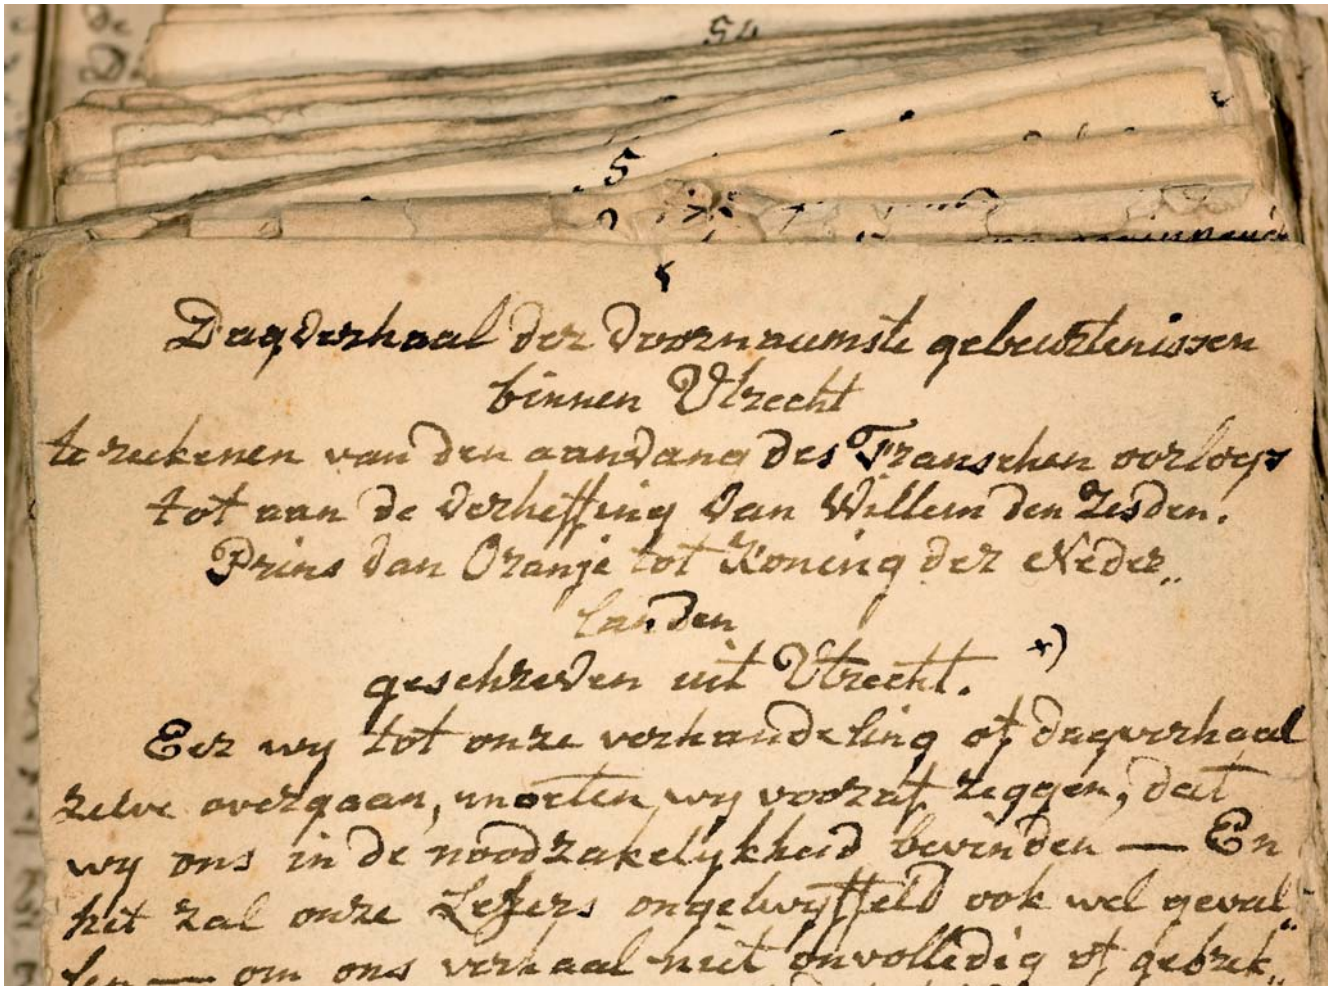 54
5
Dagverhaal der voornaamste gebeurtenissen
binnen Utrecht
te reekenen van den aanvang des Franschen oorlogs
tot aan de verheffing van Willem den Zesden.
Prins van Oranje tot Koning der Neder„
landen
geschreven uit Utrecht. x)
Eer wy tot onze verhandeling of dagverhaal
zelve overgaan, moeten wy vooraf zeggen, dat
wy ons in de noodzakelykheid bevinden — En
het zal onze Lezers ongetwyffeld ook wel geval„
len — om ons verhaal niet onvolledig of gebrek„